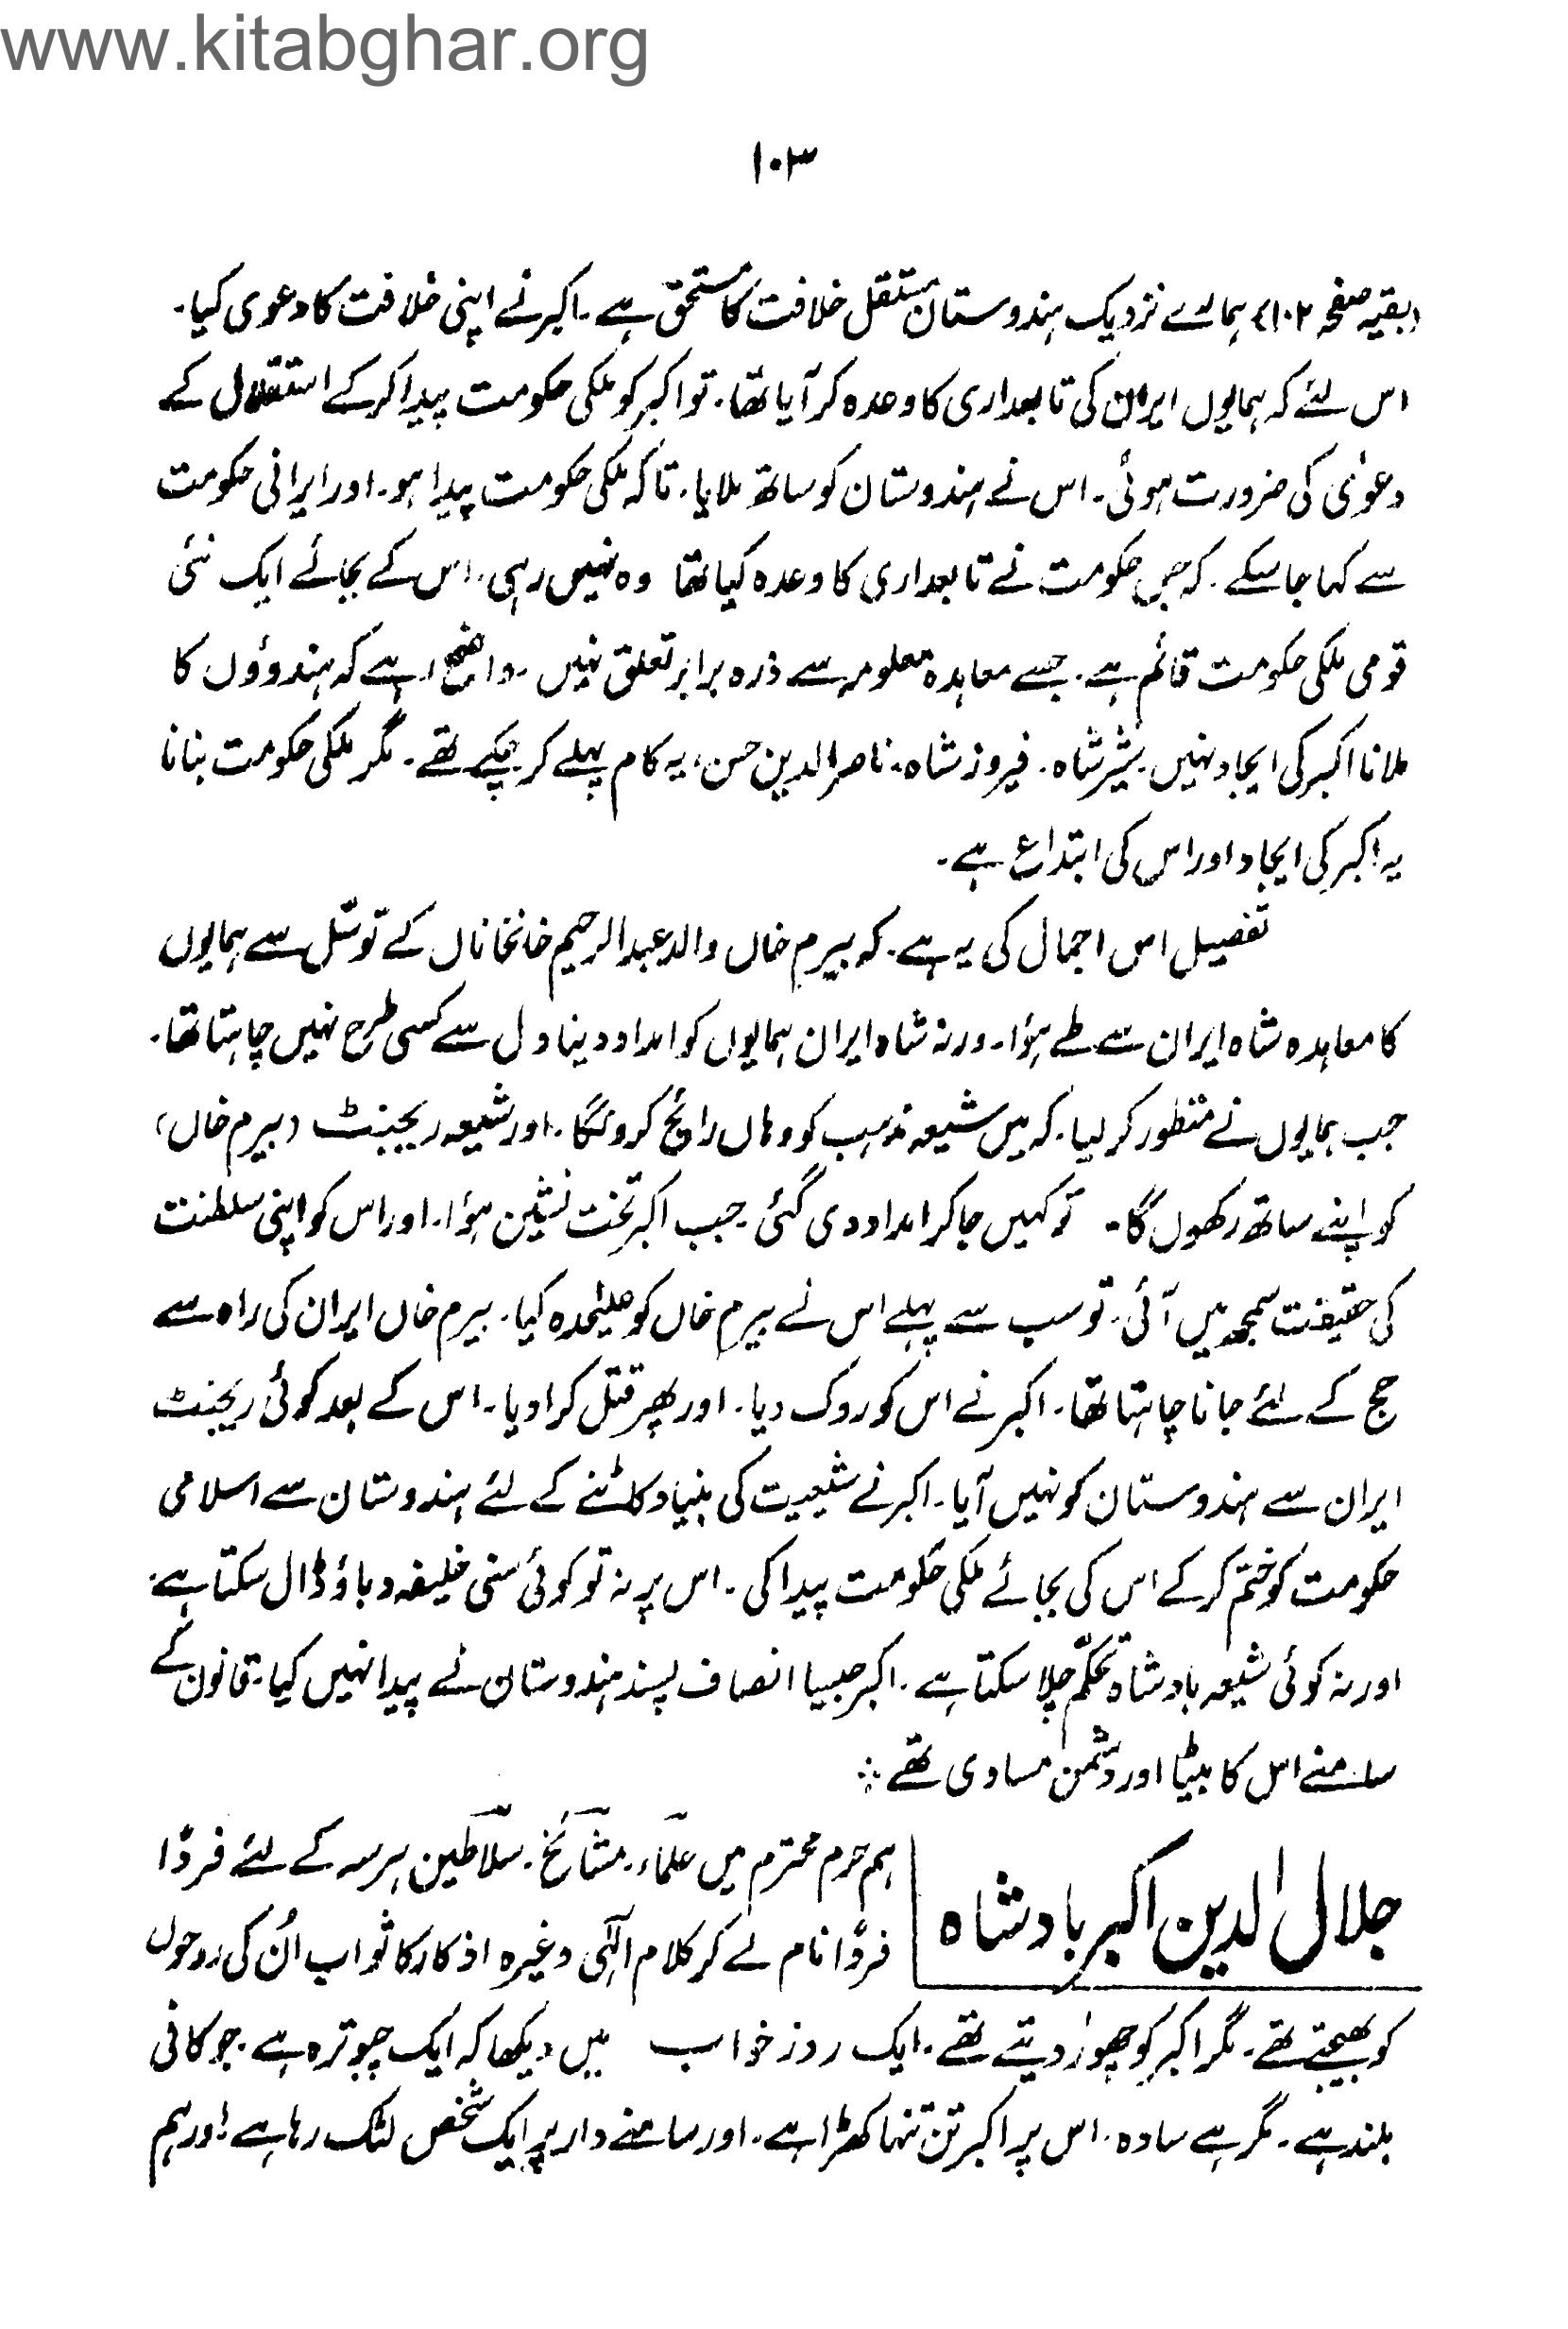 www.kitabghar.org
۱۰۳
(بقیہ صفحہ ۱۰۲) ہمارے نزدیک ہندوستان مستقل خلافت کا مستحق ہے۔ اکبر نے اپنی خلافت کا دعوی کیا۔
اس لئے کہ ہمایوں ایران کی تابعداری کا وعدہ کر آیا تھا۔ تو اکبر کو ملکی حکومت پیدا کر کے استقلال کے
دعوٰی کی ضرورت ہوئی۔ اس نے ہندوستان کو ساتھ ملایا۔ تاکہ ملکی حکومت پیدا ہو۔ اور ایرانی حکومت
سے کہا جا سکے۔ کہ جس حکومت نے تابعداری کا وعدہ کیا تھا وہ نہیں رہی۔ اس کے بجائے ایک نئی
قومی ملکی حکومت قائم ہے۔ جسے معاہدہ معلومہ سے ذرہ برابر تعلق نہیں۔ واضح رہے کہ ہندوؤں کا
ملانا اکبر کی ایجاد نہیں۔ شیر شاہ۔ فیروز شاہ۔ ناصر الدین حسن، یہ کام پہلے کر چکے تھے۔ مگر ملکی حکومت بنانا
یہ اکبر کی ایجاد اور اس کی ابتداع ہے۔
تفصیل اس اجمال کی یہ ہے۔ کہ بیرم خاں والد عبدالرحیم خانخاناں کے توسّل سے ہمایوں
کا معاہدہ شاہ ایران سے طے ہؤا۔ ورنہ شاہ ایران ہمایوں کو امداد دینا دل سے کسی طرح نہیں چاہتا تھا۔
جب ہمایوں نے منظور کر لیا۔ کہ میں شیعہ مذہب کو وہاں رائج کرونگا۔ اور شیعہ ریجنٹ (بیرم خاں)
کو اپنے ساتھ رکھوں گا۔ تو کہیں جا کر امداد دی گئی۔ جب اکبر تخت نشین ہؤا۔ اور اس کو اپنی سلطنت
کی حقیقت سمجھ میں آئی۔ تو سب سے پہلے اس نے بیرم خاں کو علیٰحدہ کیا۔ بیرم خاں ایران کی راہ سے
حج کے لئے جانا چاہتا تھا۔ اکبر نے اس کو روک دیا۔ اور پھر قتل کرا دیا۔ اس کے بعد کوئی ریجنٹ
ایران سے ہندوستان کو نہیں آیا۔ اکبر نے شیعیت کی بنیاد کاٹنے کے لئے ہندوستان سے اسلامی
حکومت کو ختم کر کے اس کی بجائے ملکی حکومت پیدا کی۔ اس پر نہ تو کوئی سنی خلیفہ دباؤ ڈال سکتا ہے۔
اور نہ کوئی شیعہ بادشاہ تحکّم چلا سکتا ہے۔ اکبر جیسا انصاف پسند ہندوستان نے پیدا نہیں کیا۔ قانون کے
سامنے اس کا بیٹا اور دشمن مساوی تھے ؞
جلال الدین اکبر بادشاہ
ہم حرم محترم میں علماء۔ مشائخ۔ سلاطین ہر سہ کے لئے فردًا
فردًا نام لے کر کلام الٰہی وغیرہ اذکار کا ثواب اُن کی روحوں
کو بھیجتے تھے۔ مگر اکبر کو چھوڑ دیتے تھے۔ ایک روز خواب میں دیکھا کہ ایک چبوترہ ہے۔ جو کافی
بلند ہے۔ مگر ہے سادہ۔ اس پر اکبر تن تنہا کھڑا ہے۔ اور سامنے دار پر ایک شخص لٹک رہا ہے۔ اور ہم